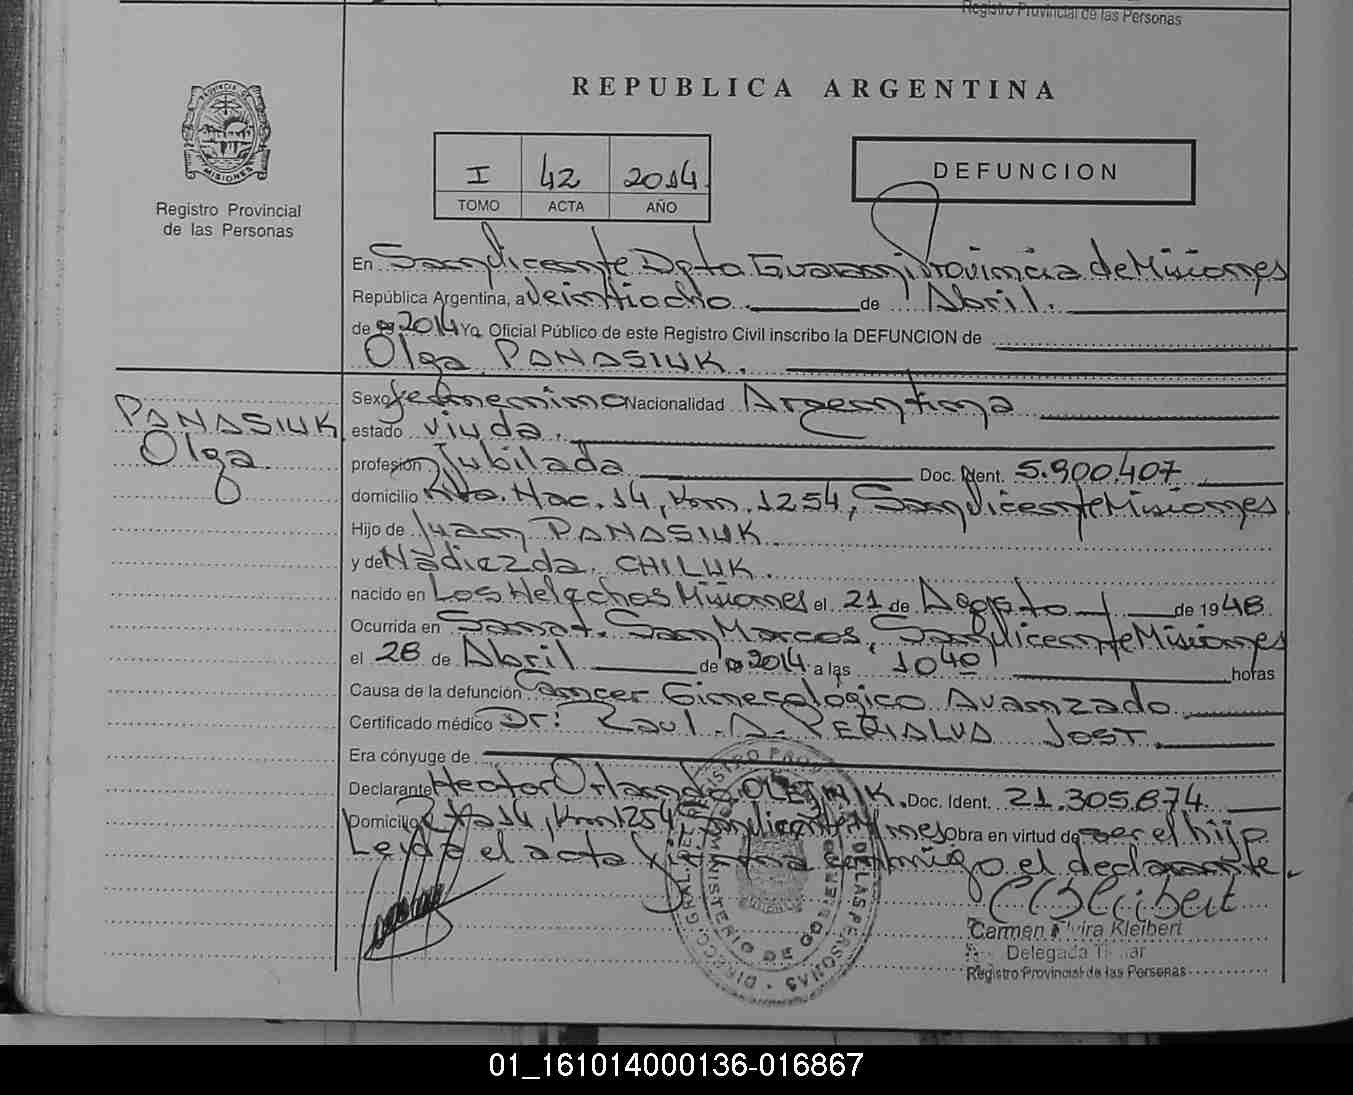 Registro Provincial de las Personas
REPUBLICA ARGENTINA
PROVINCIA DE
MISIONES
Registro Provincial
de las Personas
I 42 2014
TOMO ACTA AÑO
DEFUNCION
En San Vicente Dpto. Guarani, Provincia de Misiones
República Argentina, a Veintiocho de Abril.
de 2014 Yo, Oficial Público de este Registro Civil inscribo la DEFUNCION de
Olga PANASIUK.
PANASIUK
Olga
Sexo femenino Nacionalidad Argentina
estado viuda.
profesión Jubilada Doc. Ident. 5.900.407
domicilio Rta. Nac. 14, Km. 1254, San Vicente Misiones
Hijo de Juan PANASIUK
y de Nadiezda CHILUK.
nacido en Los Helechos Misiones el 21 de Agosto de 1948
Ocurrida en Sanat. San Marcos, San Vicente Misiones
el 28 de Abril de 2014 a las 10 40 horas
Causa de la defunción Cáncer Ginecológico Avanzado
Certificado médico Dr: Raul A. PEÑALVA JOST.
Era cónyuge de
Declarante Hector Orlando OLEJNIK. Doc. Ident. 21.305.874
Domicilio Rta 14, Km 1254 San Vicente Mnes Obra en virtud de ser el hijo
Leida el acta firma conmigo el declarante.
MINISTERIO DE GOBIERNO
DE LAS PERSONAS
Carmen Elvira Kleibert
Delegada Titular
Registro Provincial de las Personas
01_161014000136-016867